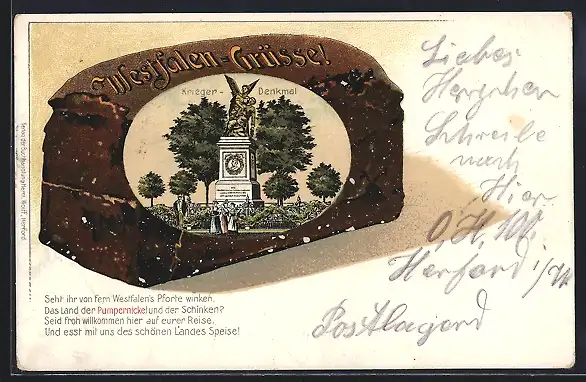 Westfalen-Grüsse!
Krieger-Denkmal
Liebes
Herzchen
Schreibe
nach
Hier
O. H. 100
Herford i/W
Postlagernd
Seht ihr von fern Westfalen's Pforte winken,
Das Land der Pumpernickel und der Schinken?
Seid froh willkommen hier auf eurer Reise,
Und esst mit uns des schönen Landes Speise!